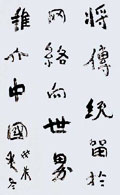 將傳统留於
网絡向世界
推介中國